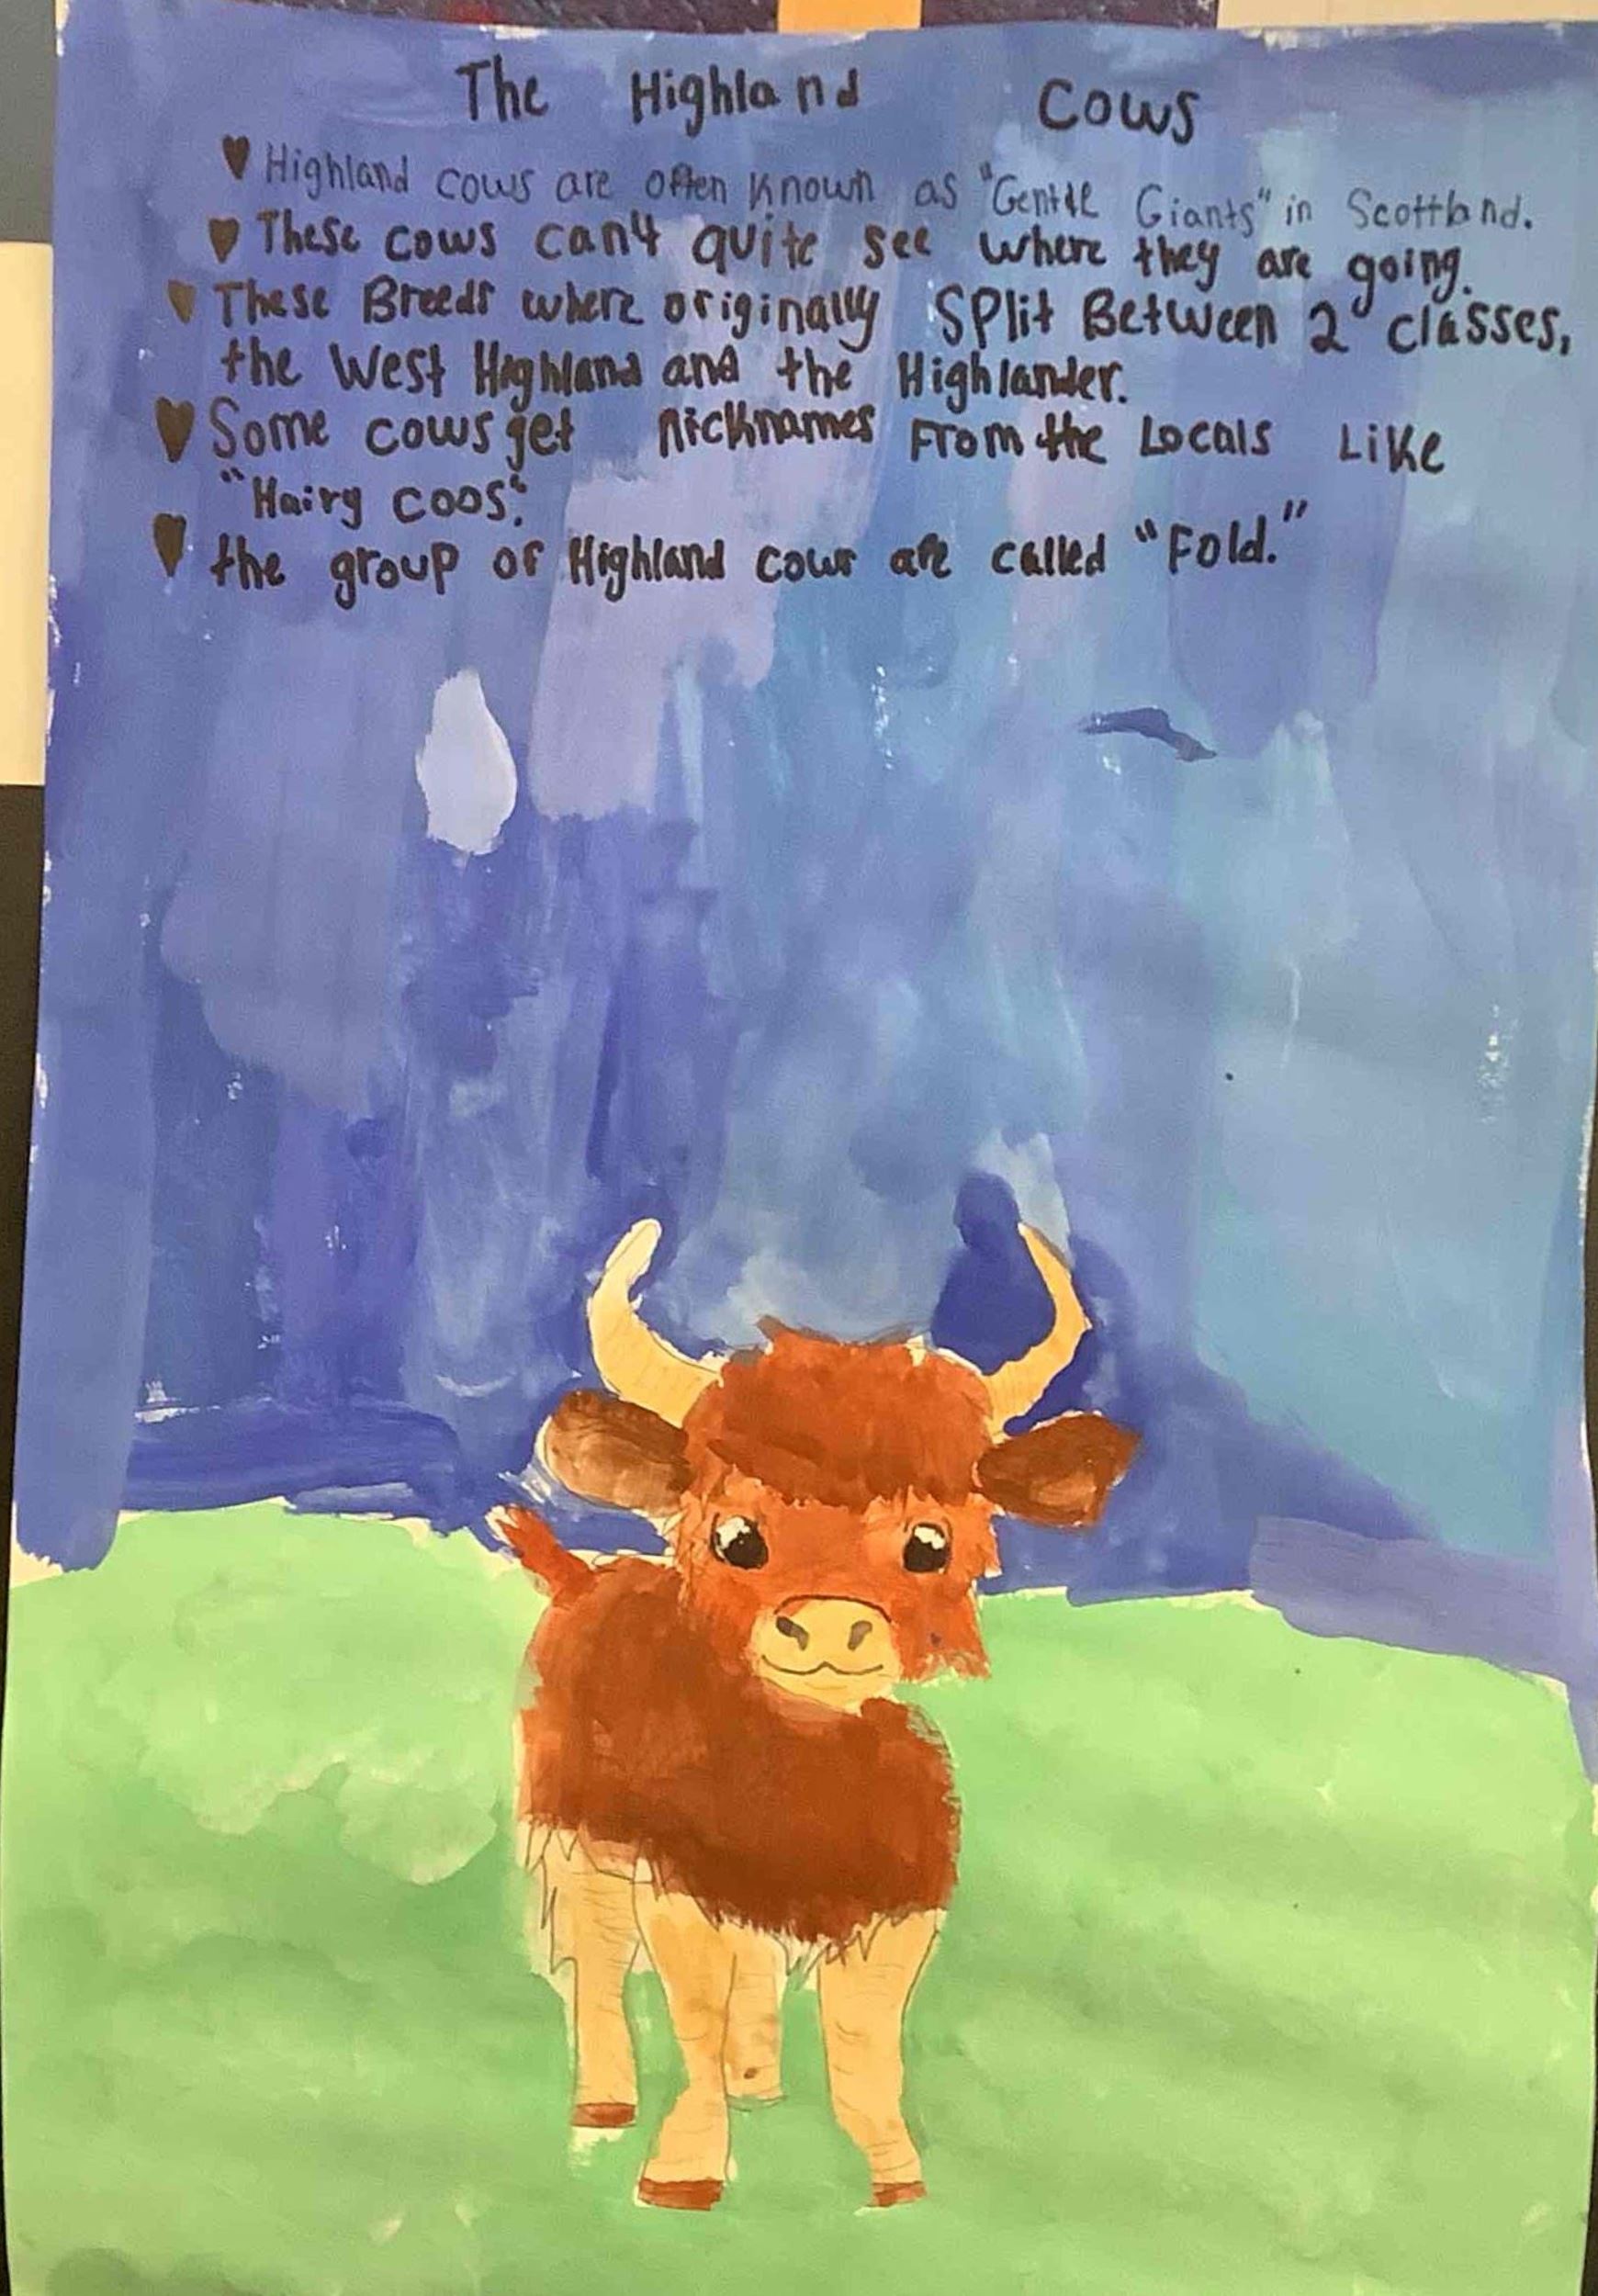 The Highland Cows
♥ Highland cows are often known as "Gentle Giants" in Scottland.
♥ These cows can't quite see where they are going.
♥ These Breeds where originally Split Between 2 classes,
the West Highland and the Highlander.
♥ Some cows get nicknames From the Locals Like
"Hairy coos".
♥ the group of Highland cows are called "Fold."